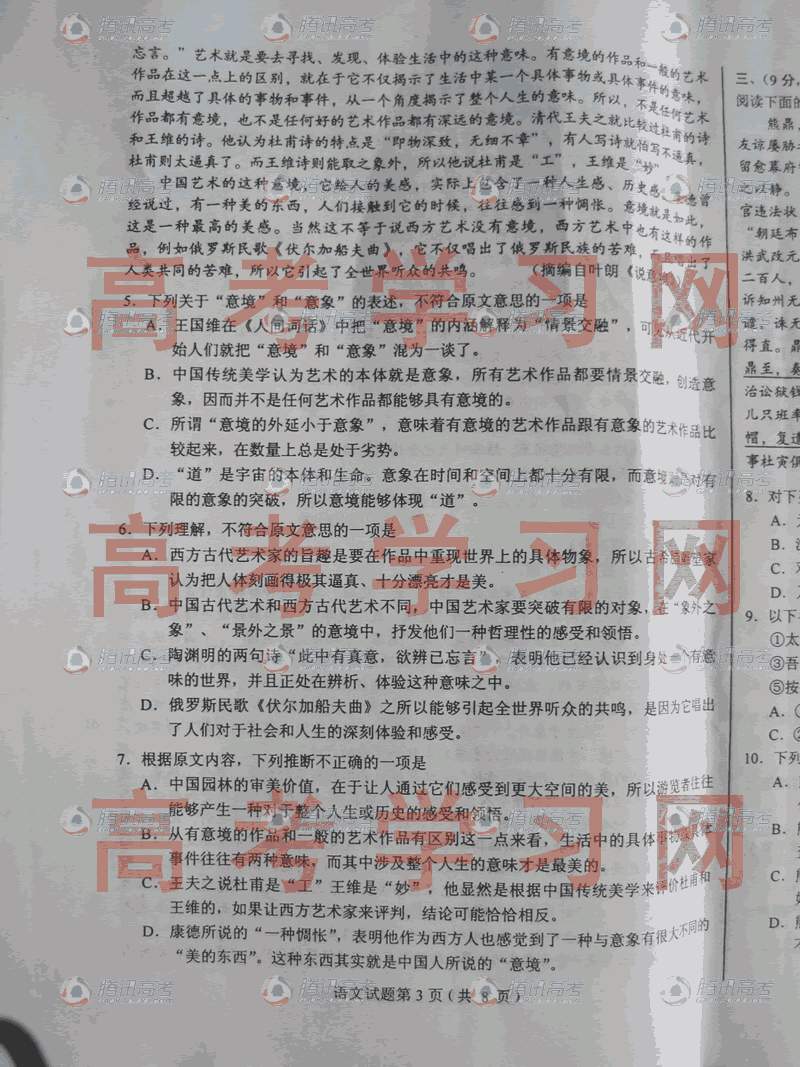 忘言。”艺术就是要去寻找、发现、体验生活中的这种意味。有意境的作品和一般的艺术
作品在这一点上的区别，就在于它不仅揭示了生活中某一个具体事物或具体事件的意味，
而且超越了具体的事物和事件，从一个角度揭示了整个人生的意味。所以，不是任何艺术
作品都有意境，也不是任何好的艺术作品都有深远的意境。清代王夫之就比较过杜甫的诗
和王维的诗。他认为杜甫诗的特点是“即物深致，无细不章”，有人写诗就怕写不逼真，
杜甫则太逼真了。而王维诗则能取之象外，所以他说杜甫是“工”，王维是“妙”
中国艺术的这种意境，它给人的美感，实际上包含了一种人生感、历史感。 德曾
经说过，有一种美的东西，人们接触到它的时候，往往感到一种惆怅。意境就是如此，
这是一种最高的美感。当然这不等于说西方艺术没有意境，西方艺术中也有这样的作
品，例如俄罗斯民歌《伏尔加船夫曲》，它不仅唱出了俄罗斯民族的苦难， 唱出了
人类共同的苦难，所以它引起了全世界听众的共鸣。 （摘编自叶朗《说意境
5．下列关于“意境”和“意象”的表述，不符合原文意思的一项是
A．王国维在《人间词话》中把“意境”的内涵解释为“情景交融”，可见从近代开
始人们就把“意境”和“意象”混为一谈了。
B．中国传统美学认为艺术的本体就是意象，所有艺术作品都要情景交融，创造意
象，因而并不是任何艺术作品都能够具有意境的。
C．所谓“意境的外延小于意象”，意味着有意境的艺术作品跟有意象的艺术作品比
较起来，在数量上总是处于劣势。
D．“道”是宇宙的本体和生命。意象在时间和空间上都十分有限，而意境 对有
限的意象的突破，所以意境能够体现“道”。
6．下列理解，不符合原文意思的一项是
A．西方古代艺术家的旨趣是要在作品中重现世界上的具体物象，所以古希腊雕塑家
认为把人体刻画得极其逼真、十分漂亮才是美。
B．中国古代艺术和西方古代艺术不同，中国艺术家要突破有限的对象，在“象外之
象”、“景外之景”的意境中，抒发他们一种哲理性的感受和领悟。
C．陶渊明的两句诗“此中有真意，欲辨已忘言”，表明他已经认识到身处一个有意
味的世界，并且正处在辨析、体验这种意味之中。
D．俄罗斯民歌《伏尔加船夫曲》之所以能够引起全世界听众的共鸣，是因为它唱出
了人们对于社会和人生的深刻体验和感受。
7．根据原文内容，下列推断不正确的一项是
A．中国园林的审美价值，在于让人通过它们感受到更大空间的美，所以游览者往往
能够产生一种对于整个人生或历史的感受和领悟。
B．从有意境的作品和一般的艺术作品有区别这一点来看，生活中的具体事物或具体
事件往往有两种意味，而其中涉及整个人生的意味才是最美的。
C．王夫之说杜甫是“工”王维是“妙”，他显然是根据中国传统美学来评价杜甫和
王维的，如果让西方艺术家来评判，结论可能恰恰相反。
D．康德所说的“一种惆怅”，表明他作为西方人也感觉到了一种与意象有很大不同的
“美的东西”。这种东西其实就是中国人所说的“意境”。
语文试题第 3 页（共 8 页）
三、（9分，
阅读下面的
熊鼎，
友谅屡胁
留愈幕府
之以静。
官违法状
“朝廷布
洪武改元
二百人，
诉知州无
道、诛无
得直。
鼎至，奏
治讼狱钱
儿只班率
帽，复遣
事杜寅俱
8．对下
A．
B．
C．
D．
9．以下
①太
③吾
⑤按
A．
C．
10．下列
A．
B．
C．
D．
高考学习网
高考学习网
高考学习网
腾讯高考